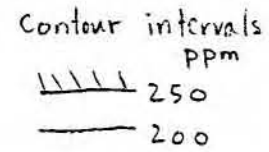 Contour intervals
ppm
250
200